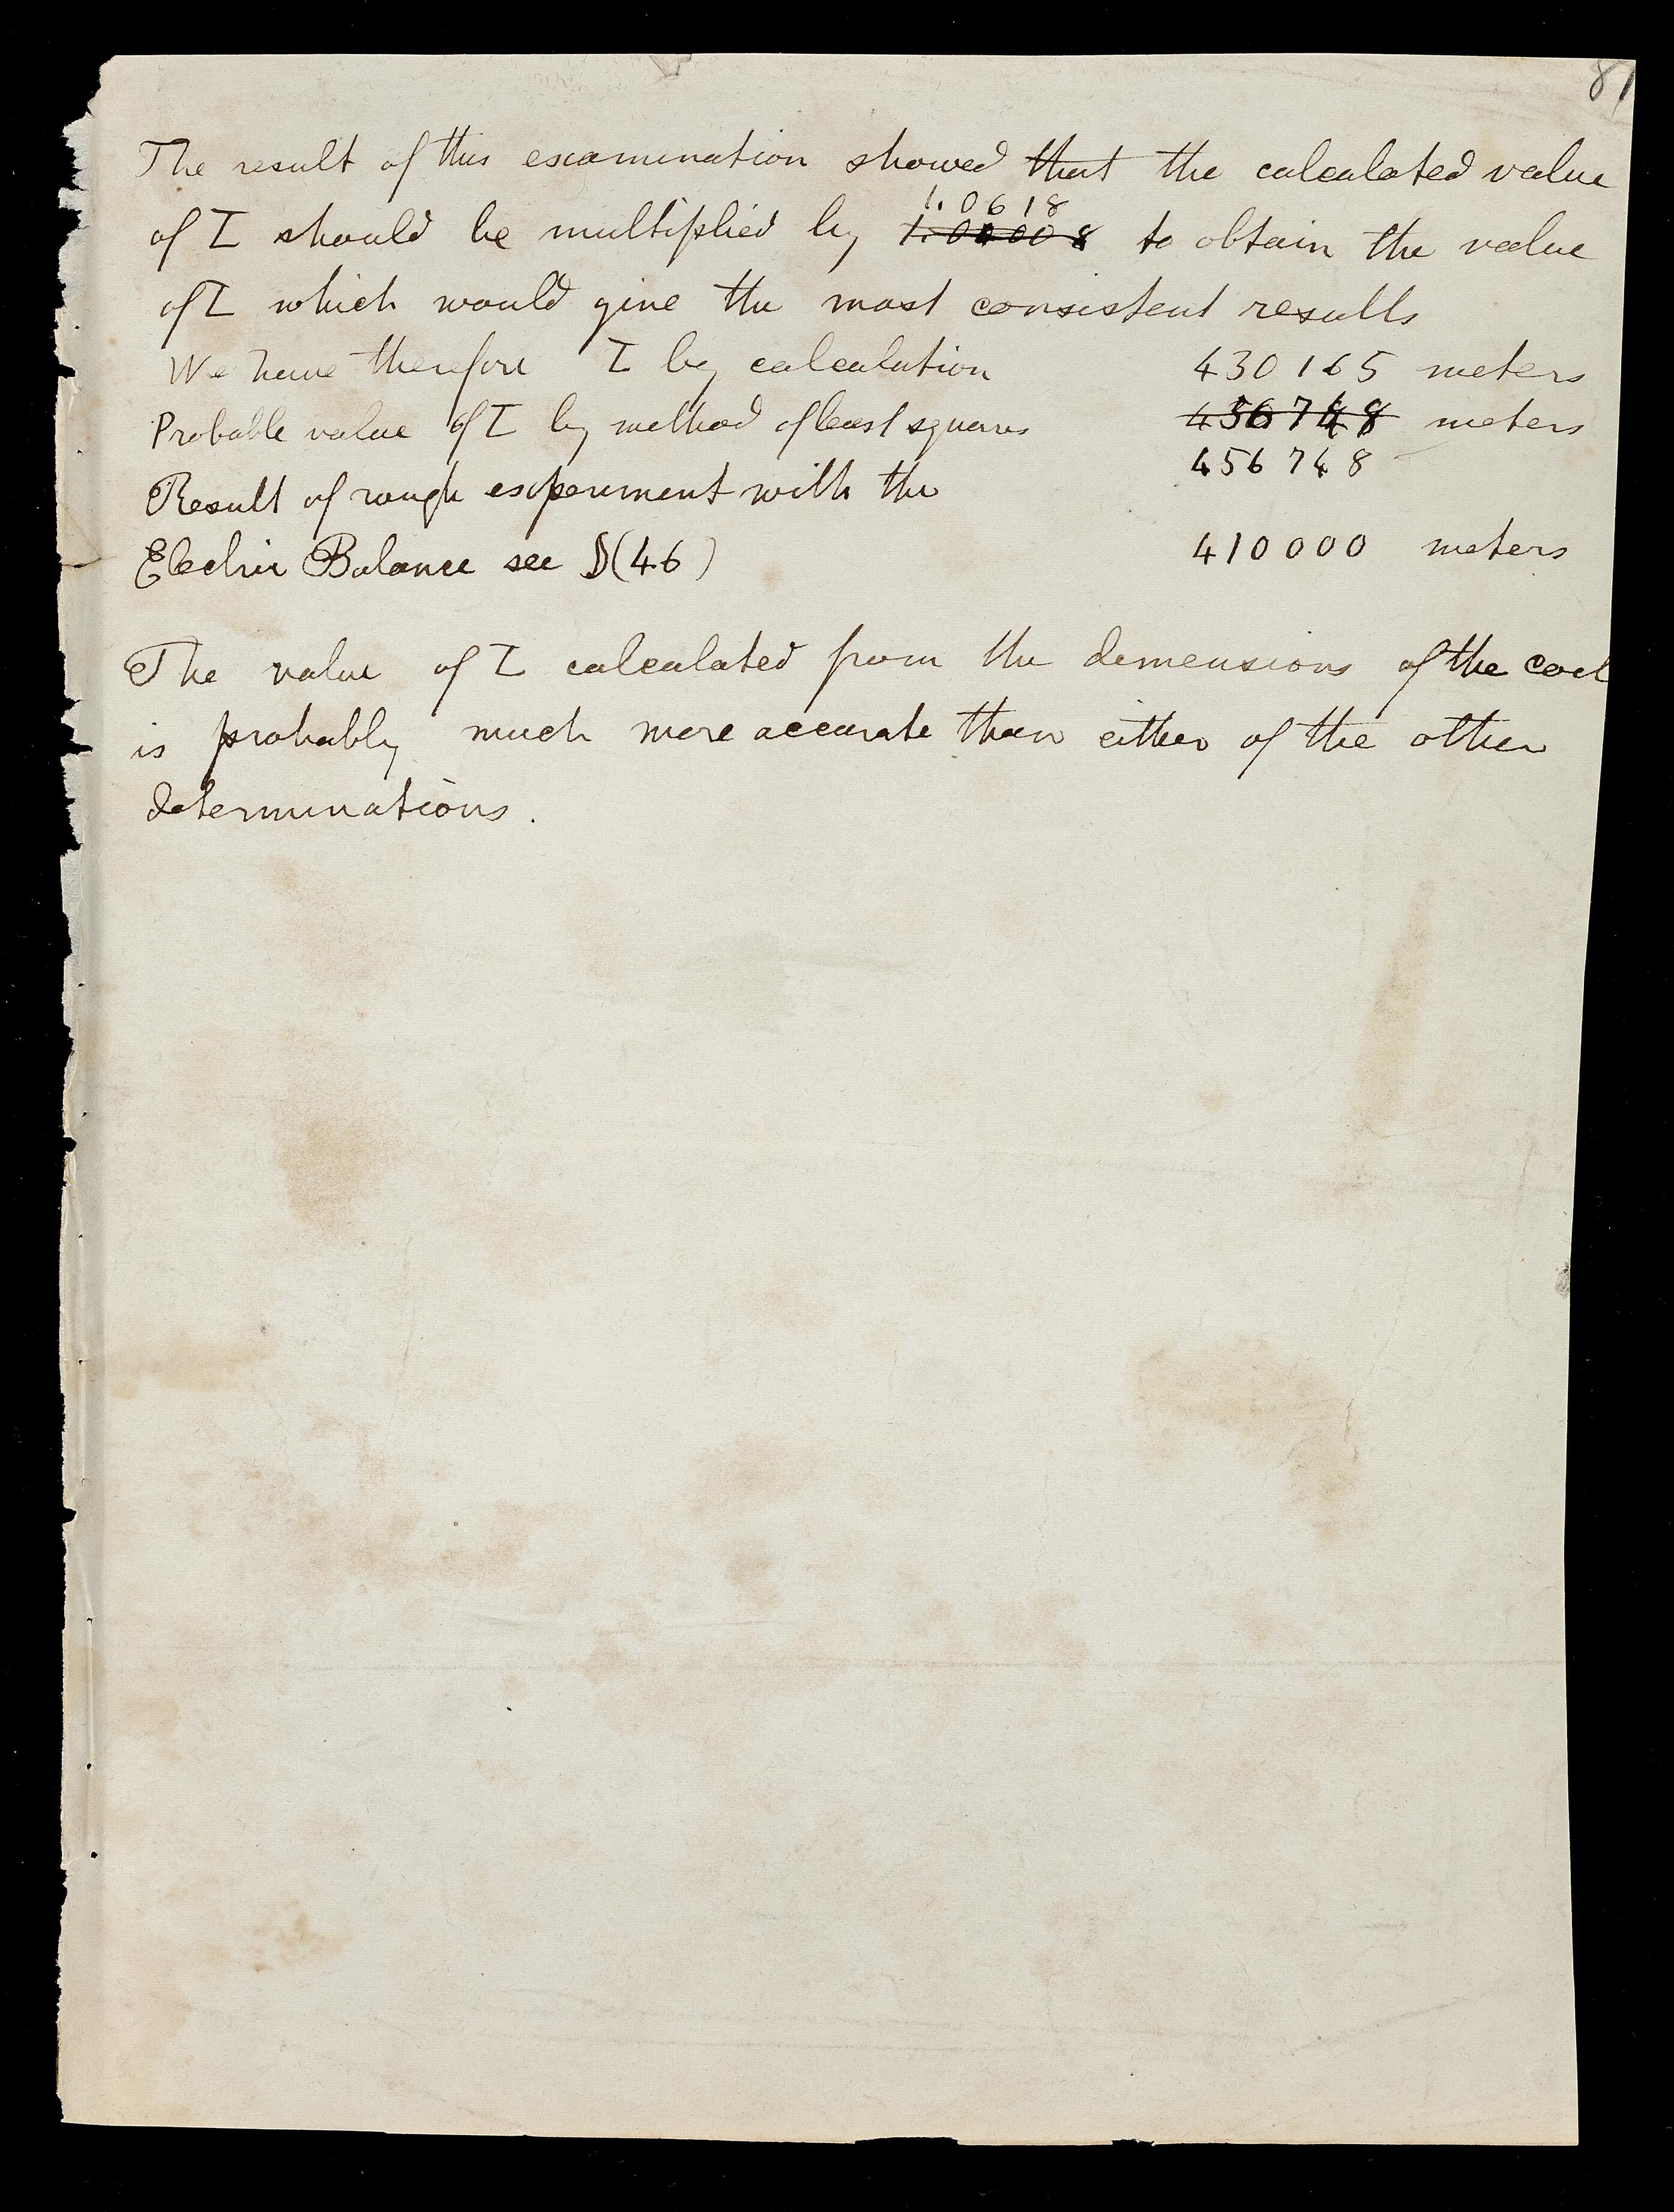 81
The result of this examination showed that the calculated value
1.0618
of L should be multiplied by to obtain the value
of L which would give the most consistent results
We have therefore L by calculation 430165 meters
Probable value of L by method of least squares 456748 meters
456748
Result of rough experiment with the
Electric Balance see § (46) 410000 meters
The value of L calculated from the dimensions of the coil
is probably much more accurate than either of the other
determinations.